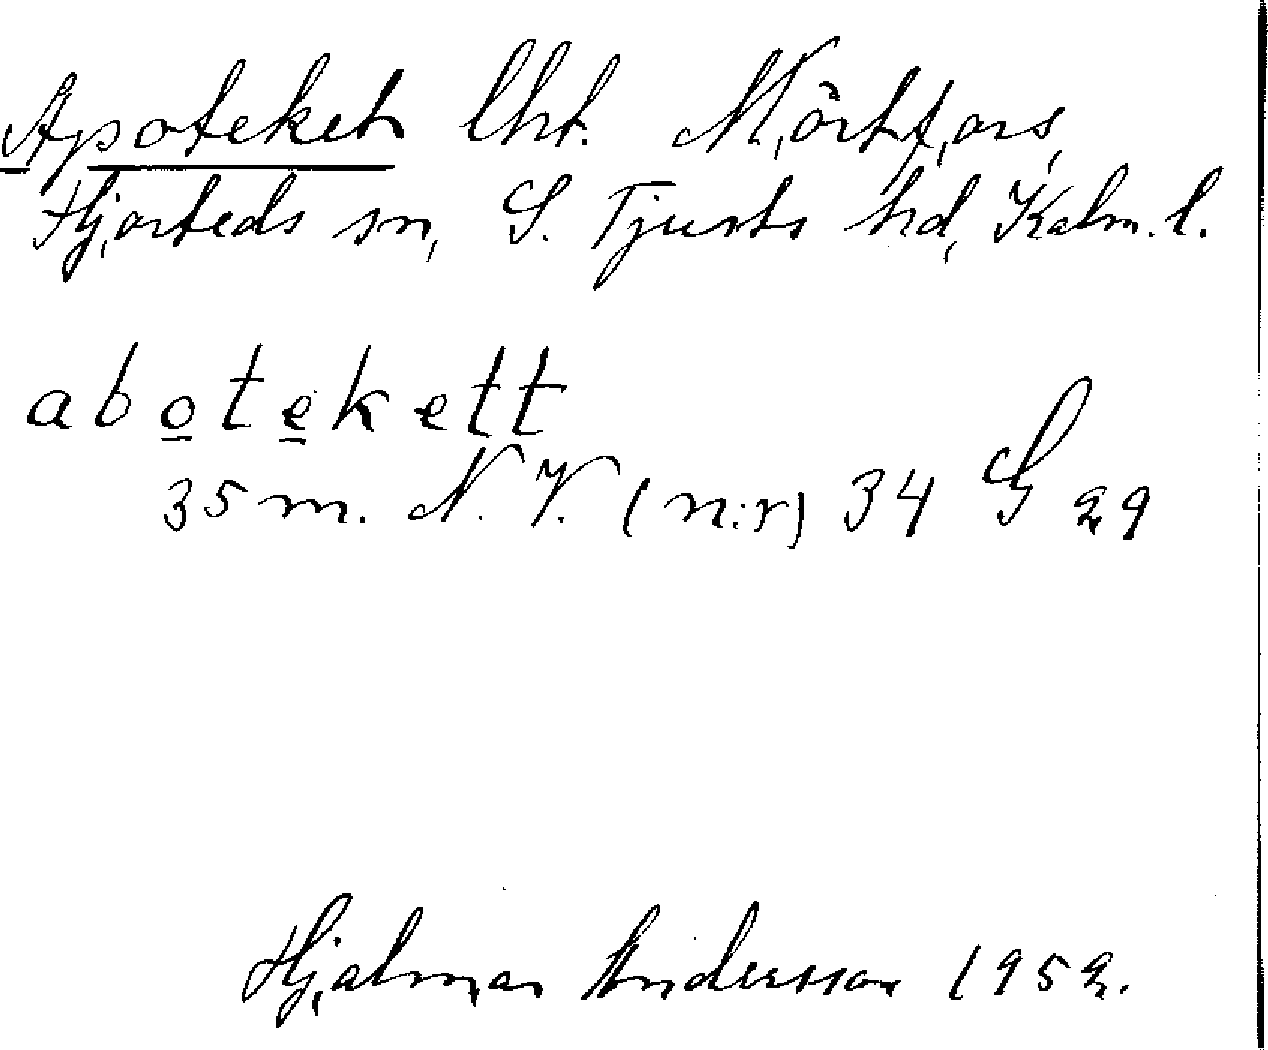 Apoteket lht. Mörtfors,
Hjorteds sn, S. Tjusts hd, Kalm. l.
abotekett
35 m. N. V. (n:r) 34 G 29
Hjalmar Andersson 1952.